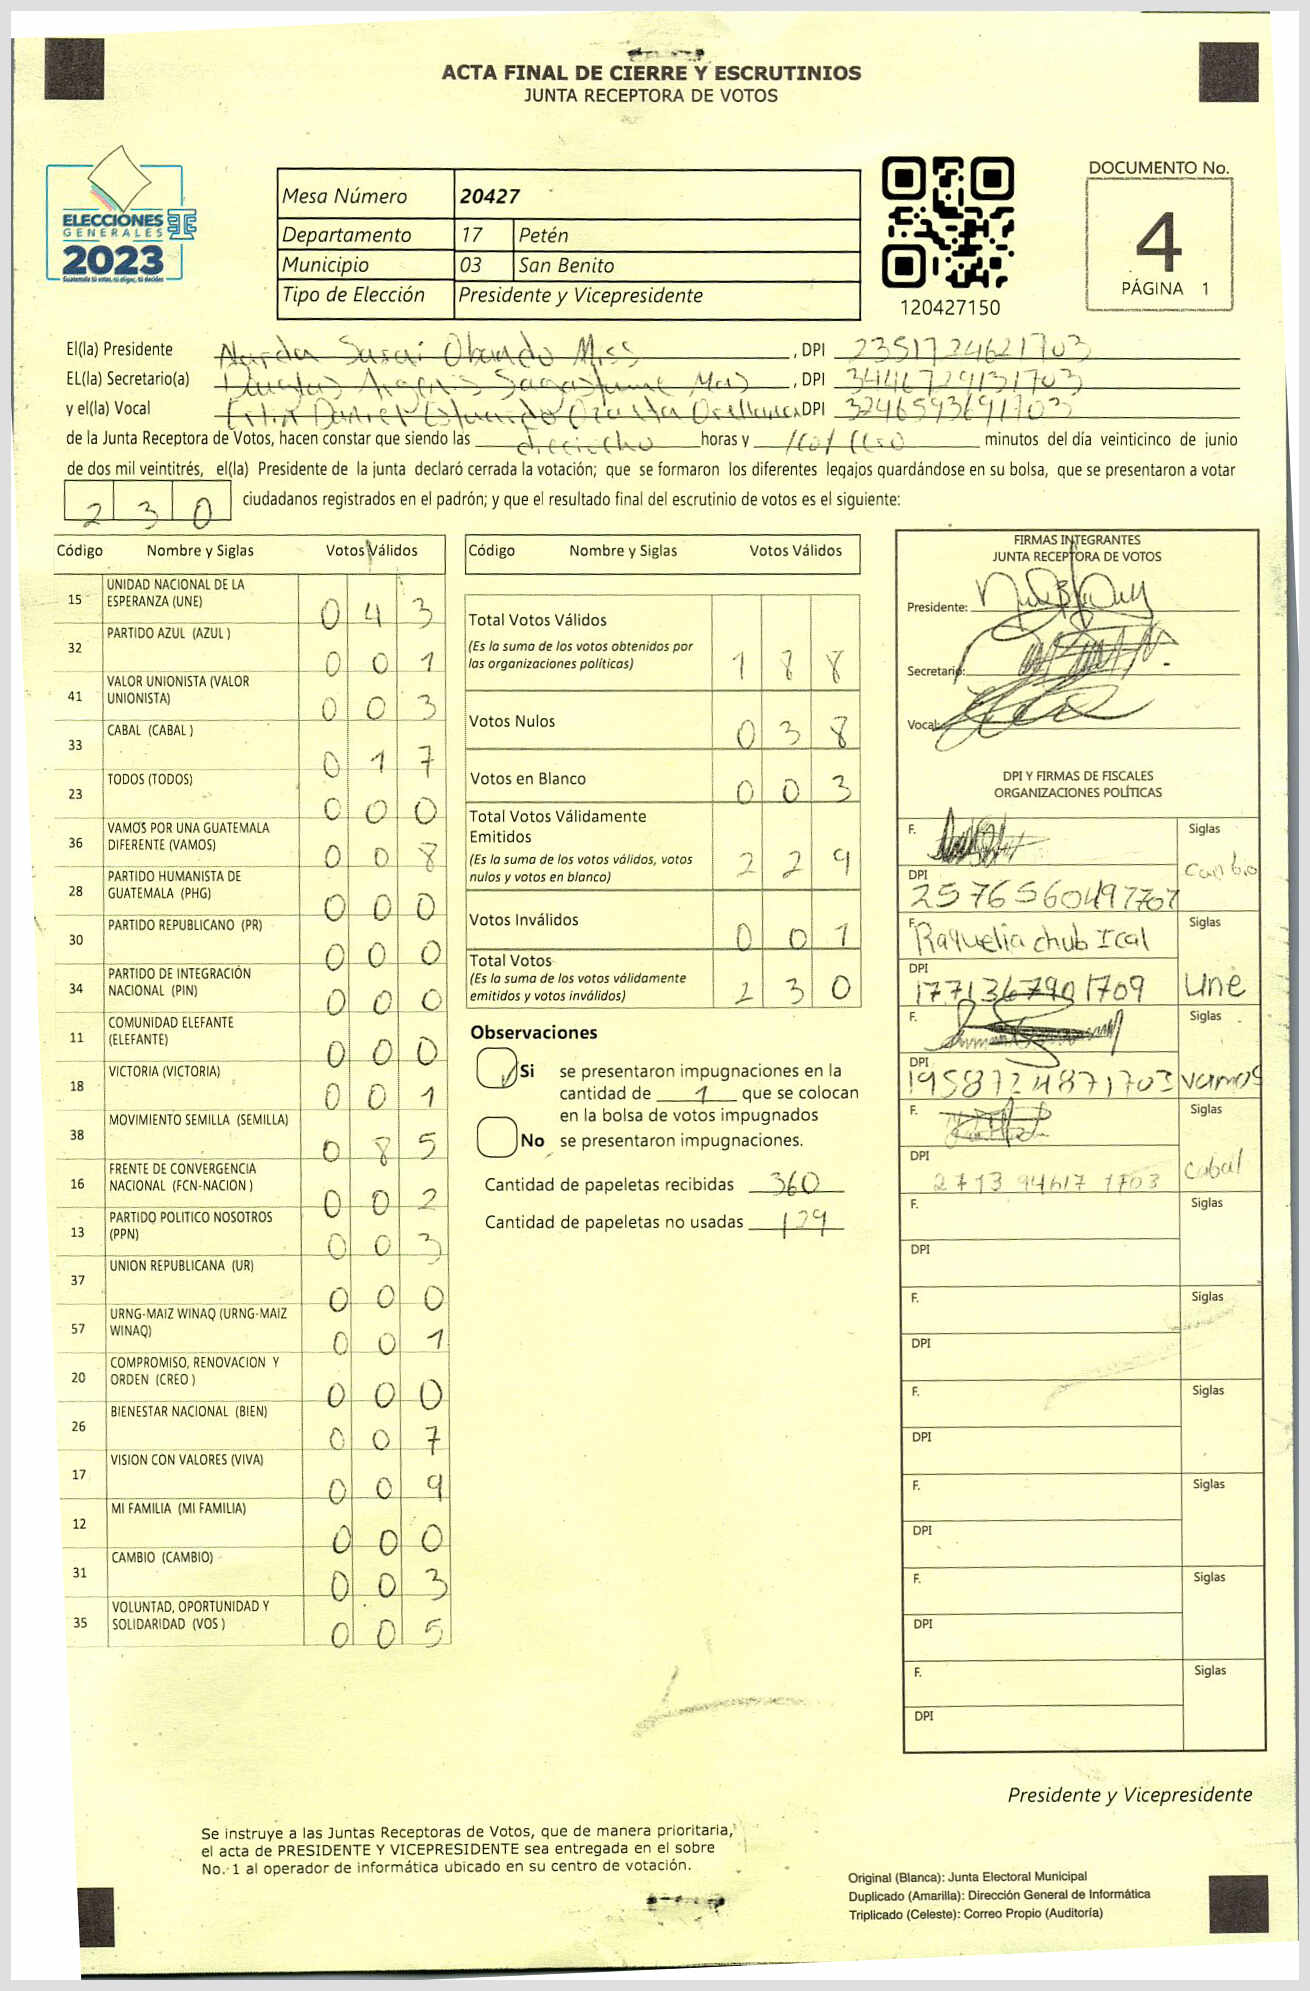 ACTA FINAL DE CIERRE Y ESCRUTINIOS
JUNTA RECEPTORA DE VOTOS
ELECCIONES
GENERALES
2023
Guatemala tú votas, tú eliges, tú decides
Mesa Número 20427
Departamento 17 Petén
Municipio 03 San Benito
Tipo de Elección Presidente y Vicepresidente
120427150
DOCUMENTO No.
4
PÁGINA 1
El(la) Presidente Sarai Obando , DPI 2351724621703
EL(la) Secretario(a) Sagastume , DPI 3446729131703
y el(la) Vocal Daniel Orellana DPI 3246593691703
de la Junta Receptora de Votos, hacen constar que siendo las dieciocho horas y minutos del día veinticinco de junio
de dos mil veintitrés, el(la) Presidente de la junta declaró cerrada la votación; que se formaron los diferentes legajos quardándose en su bolsa, que se presentaron a votar
230 ciudadanos registrados en el padrón; y que el resultado final del escrutinio de votos es el siguiente:
Código Nombre y Siglas Votos Válidos
15 UNIDAD NACIONAL DE LA ESPERANZA (UNE) 0 4 3
32 PARTIDO AZUL (AZUL ) 0 0 1
41 VALOR UNIONISTA (VALOR UNIONISTA) 0 0 3
33 CABAL (CABAL ) 0 1 7
23 TODOS (TODOS) 0 0 0
36 VAMOS POR UNA GUATEMALA DIFERENTE (VAMOS) 0 0 8
28 PARTIDO HUMANISTA DE GUATEMALA (PHG) 0 0 0
30 PARTIDO REPUBLICANO (PR) 0 0 0
34 PARTIDO DE INTEGRACIÓN NACIONAL (PIN) 0 0 0
11 COMUNIDAD ELEFANTE (ELEFANTE) 0 0 0
18 VICTORIA (VICTORIA) 0 0 1
38 MOVIMIENTO SEMILLA (SEMILLA) 0 8 5
16 FRENTE DE CONVERGENCIA NACIONAL (FCN-NACION ) 0 0 2
13 PARTIDO POLITICO NOSOTROS (PPN) 0 0 3
37 UNION REPUBLICANA (UR) 0 0 0
57 URNG-MAIZ WINAQ (URNG-MAIZ WINAQ) 0 0 1
20 COMPROMISO, RENOVACION Y ORDEN (CREO ) 0 0 0
26 BIENESTAR NACIONAL (BIEN) 0 0 7
17 VISION CON VALORES (VIVA) 0 0 9
12 MI FAMILIA (MI FAMILIA) 0 0 0
31 CAMBIO (CAMBIO) 0 0 3
35 VOLUNTAD, OPORTUNIDAD Y SOLIDARIDAD (VOS ) 0 0 5
Código Nombre y Siglas Votos Válidos
Total Votos Válidos 1 8 8
(Es la suma de los votos obtenidos por
las organizaciones políticas)
Votos Nulos 0 3 8
Votos en Blanco 0 0 3
Total Votos Válidamente
Emitidos 2 2 9
(Es la suma de los votos válidos, votos
nulos y votos en blanco)
Votos Inválidos 0 0 1
Total Votos 2 3 0
(Es la suma de los votos válidamente
emitidos y votos inválidos)
Observaciones
Si se presentaron impugnaciones en la
cantidad de 1 que se colocan
en la bolsa de votos impugnados
No se presentaron impugnaciones.
Cantidad de papeletas recibidas 360
Cantidad de papeletas no usadas 129
FIRMAS INTEGRANTES
JUNTA RECEPTORA DE VOTOS
Presidente:
Secretario:
Vocal:
DPI Y FIRMAS DE FISCALES
ORGANIZACIONES POLÍTICAS
F. Siglas
Cambio
DPI
2576560497707
F. Raquelia chub Ical Siglas
DPI
1771367901709 Une
F. Siglas
DPI
1958724871703 vamos
F. Siglas
DPI cabal
2713 94617 1703
F. Siglas
DPI
F. Siglas
DPI
F. Siglas
DPI
F. Siglas
DPI
F. Siglas
DPI
F. Siglas
DPI
Presidente y Vicepresidente
Se instruye a las Juntas Receptoras de Votos, que de manera prioritaria,
el acta de PRESIDENTE Y VICEPRESIDENTE sea entregada en el sobre
No. 1 al operador de informática ubicado en su centro de votación.
Original (Blanca): Junta Electoral Municipal
Duplicado (Amarilla): Dirección General de Informática
Triplicado (Celeste): Correo Propio (Auditoría)